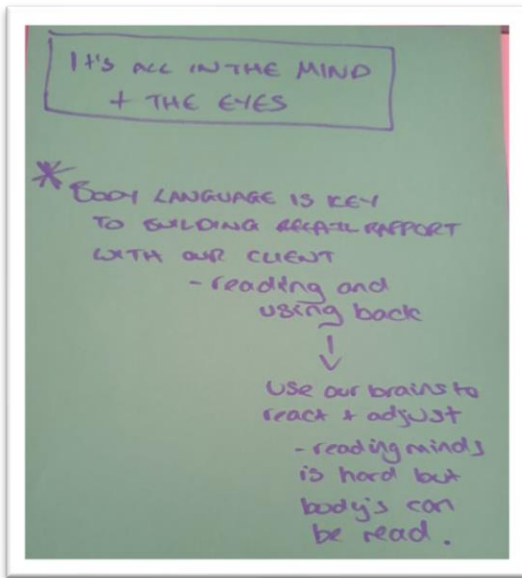 It's ALL IN THE MIND
+ THE EYES
* BODY LANGUAGE IS KEY
TO BUILDING RAPPORT
WITH OUR CLIENT
- reading and
using back
↓
use our brains to
react + adjust
- reading minds
is hard but
body's can
be read.